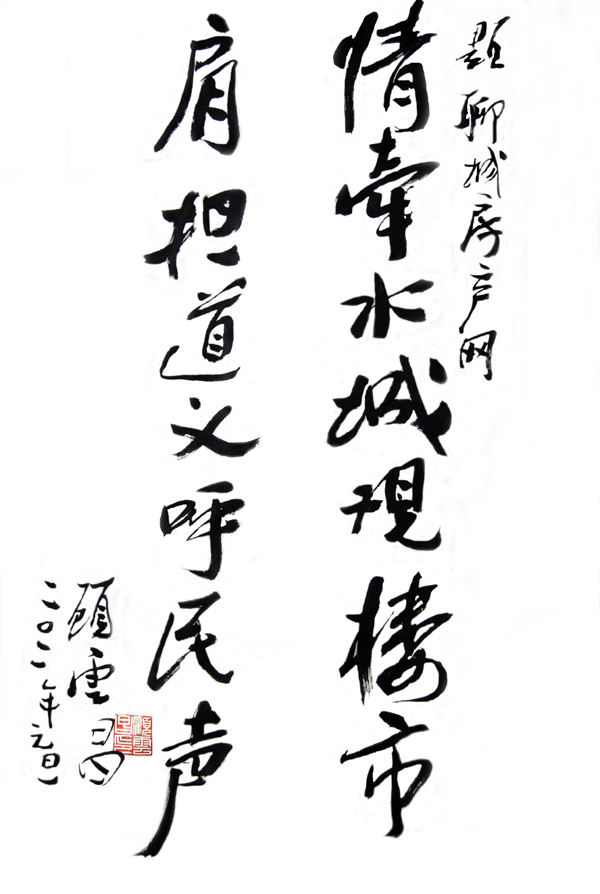 题聊城房产网
情牵水城現楼市
肩担道义呼民声
顾雲昌
二〇一一年元旦